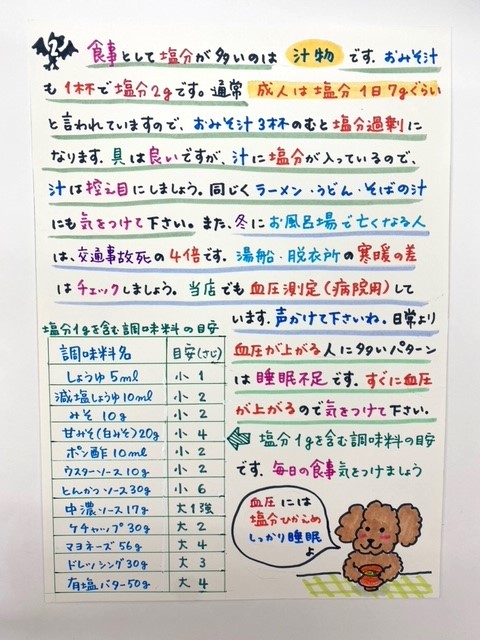 2
食事として塩分が多いのは 汁物 です。おみそ汁
も1杯で塩分2gです。通常 成人は塩分1日7gぐらい
と言われていますので、おみそ汁3杯のむと塩分過剰に
なります。具は良いですが、汁に塩分が入っているので、
汁は控え目にしましょう。同じくラーメン・うどん・そばの汁
にも気をつけて下さい。また、冬にお風呂場で亡くなる人
は、交通事故死の4倍です。湯船・脱衣所の寒暖の差
はチェックしましょう。当店でも血圧測定(病院用)して
います。声かけて下さいね。日常より
血圧が上がる人に多いパターン
は睡眠不足です。すぐに血圧
が上がるので気をつけて下さい。
塩分1gを含む調味料の目安
です。毎日の食事気をつけましょう
塩分1gを含む調味料の目安
調味料名 目安(さじ)
しょうゆ5ml 小1
減塩しょうゆ10ml 小2
みそ10g 小2
甘みそ(白みそ)20g 小4
ポン酢10ml 小2
ウスターソース10g 小2
とんかつソース30g 小6
中濃ソース17g 大1強
ケチャップ30g 大2
マヨネーズ56g 大4
ドレッシング30g 大3
有塩バター50g 大4
血圧には
塩分ひかえめ
しっかり睡眠
よ